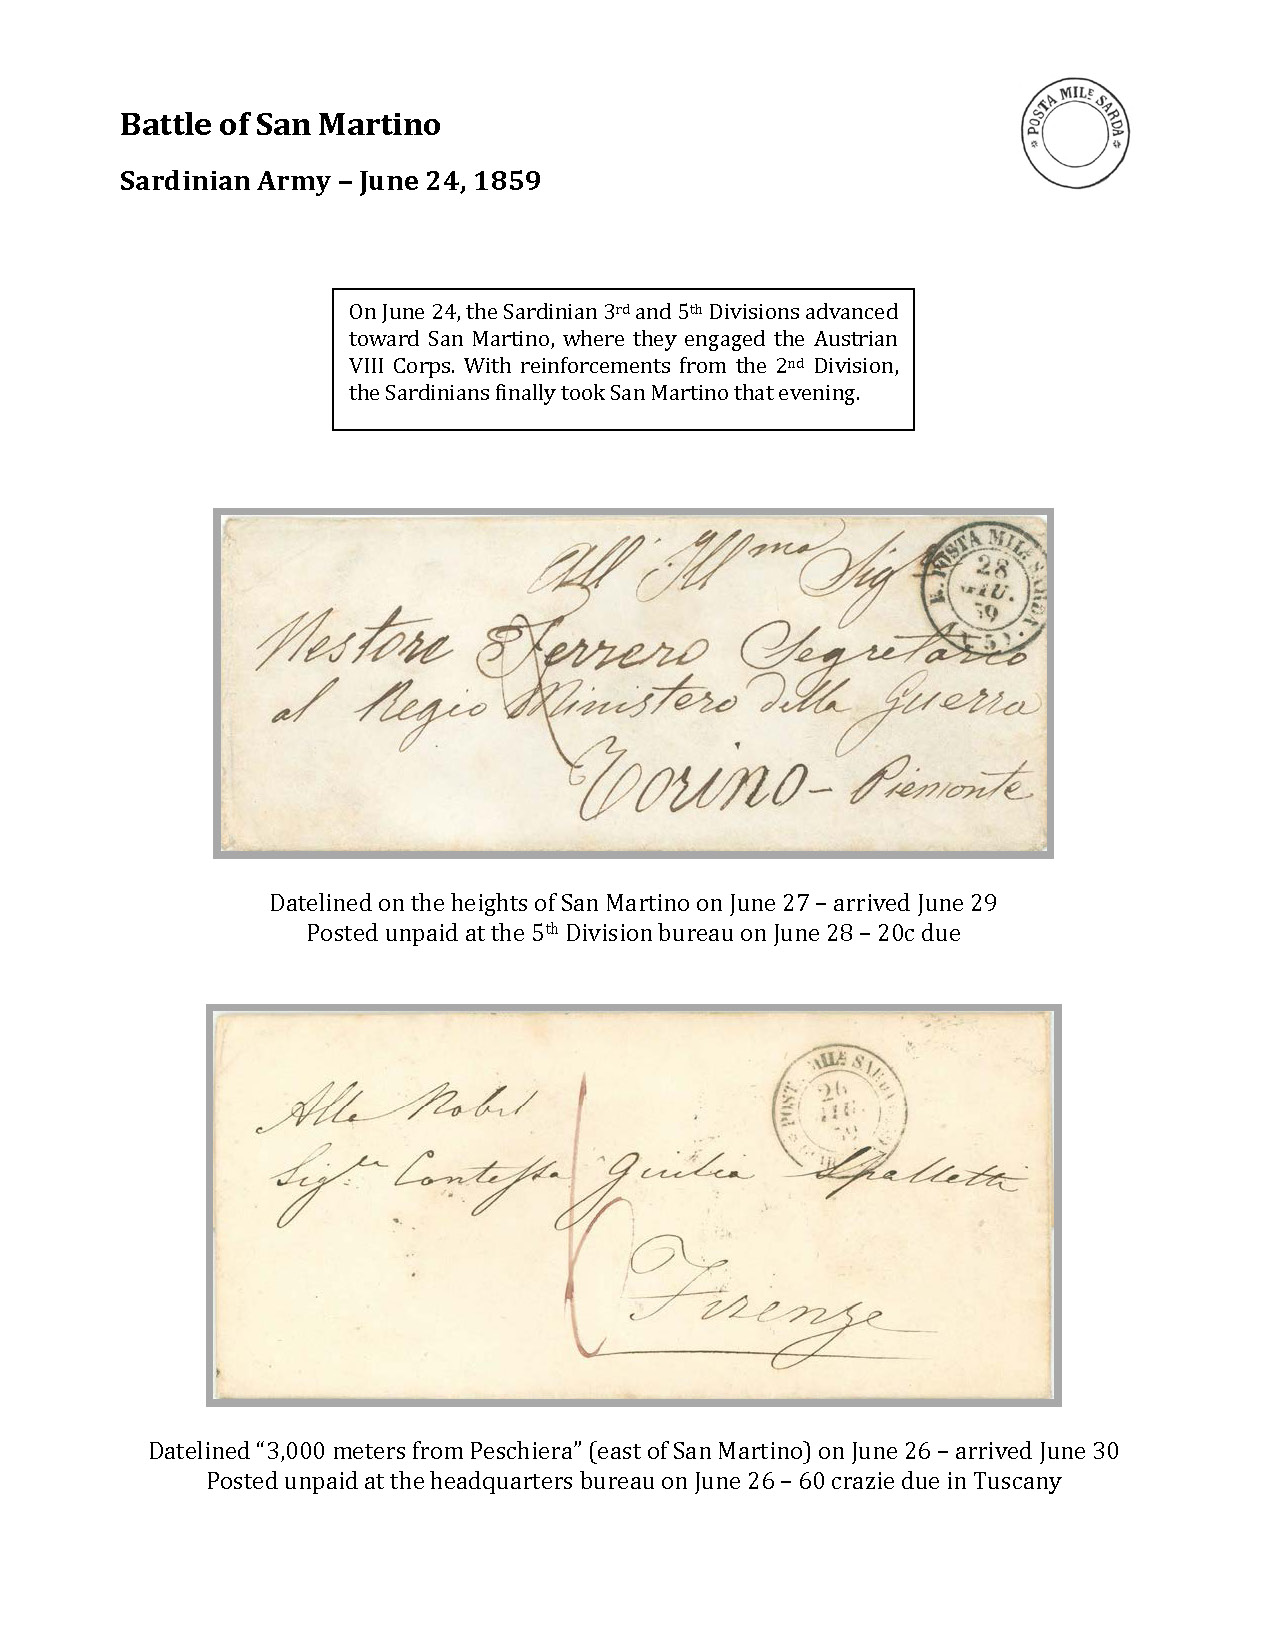 Battle of San Martino
POSTA MILE SARDA
Sardinian Army – June 24, 1859
On June 24, the Sardinian 3rd and 5th Divisions advanced
toward San Martino, where they engaged the Austrian
VIII Corps. With reinforcements from the 2nd Division,
the Sardinians finally took San Martino that evening.
All' Illmo Sig
R. POSTA MILE SARDA
28
GIU.
59
(N.5).
Nestore Ferrero Segretario
al Regio Ministero della Guerra
Torino – Piemonte
Datelined on the heights of San Martino on June 27 – arrived June 29
Posted unpaid at the 5th Division bureau on June 28 – 20c due
POSTA MILE SARDA
26
GIU.
59
Alla Nobil
Sigra Contessa Giulia Spalletti
6
Firenze
Datelined “3,000 meters from Peschiera” (east of San Martino) on June 26 – arrived June 30
Posted unpaid at the headquarters bureau on June 26 – 60 crazie due in Tuscany